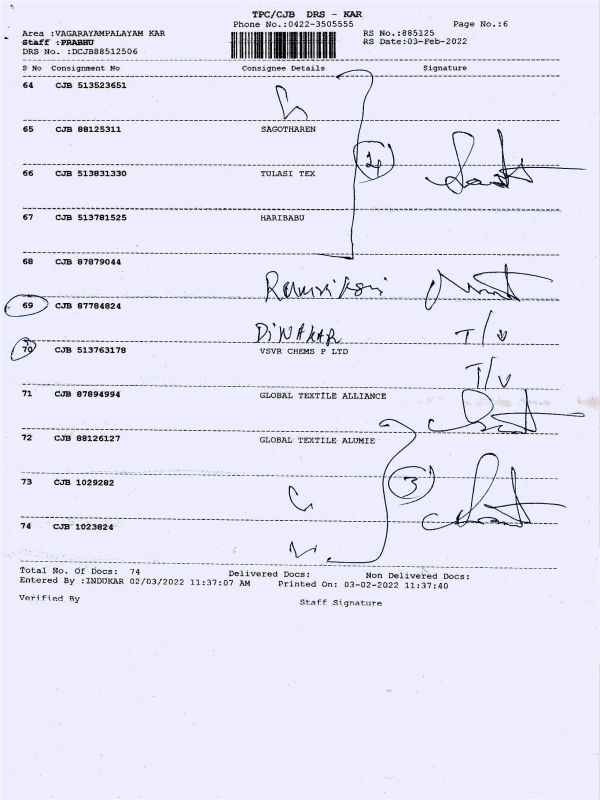 TPC/CJB DRS - KAR
Phone No.:0422-3505555 Page No.:6
Area :VAGARAYAMPALAYAM KAR RS No.:885125
Staff :PRABHU RS Date:03-Feb-2022
DRS No. :DCJB88512506
S No Consignment No Consignee Details Signature
64 CJB 513523651
65 CJB 88125311 SAGOTHAREN
4
66 CJB 513831330 TULASI TEX
67 CJB 513781525 HARIBABU
68 CJB 87879044
69 CJB 87784824
DiWAKAR T/V
70 CJB 513763178 VSVR CHEMS P LTD
T/V
71 CJB 87894994 GLOBAL TEXTILE ALLIANCE
72 CJB 88126127 GLOBAL TEXTILE ALUMIE
73 CJB 1029282 3
74 CJB 1023824
Total No. Of Docs: 74 Delivered Docs: Non Delivered Docs:
Entered By :INDUKAR 02/03/2022 11:37:07 AM Printed On: 03-02-2022 11:37:40
Verified By Staff Signature